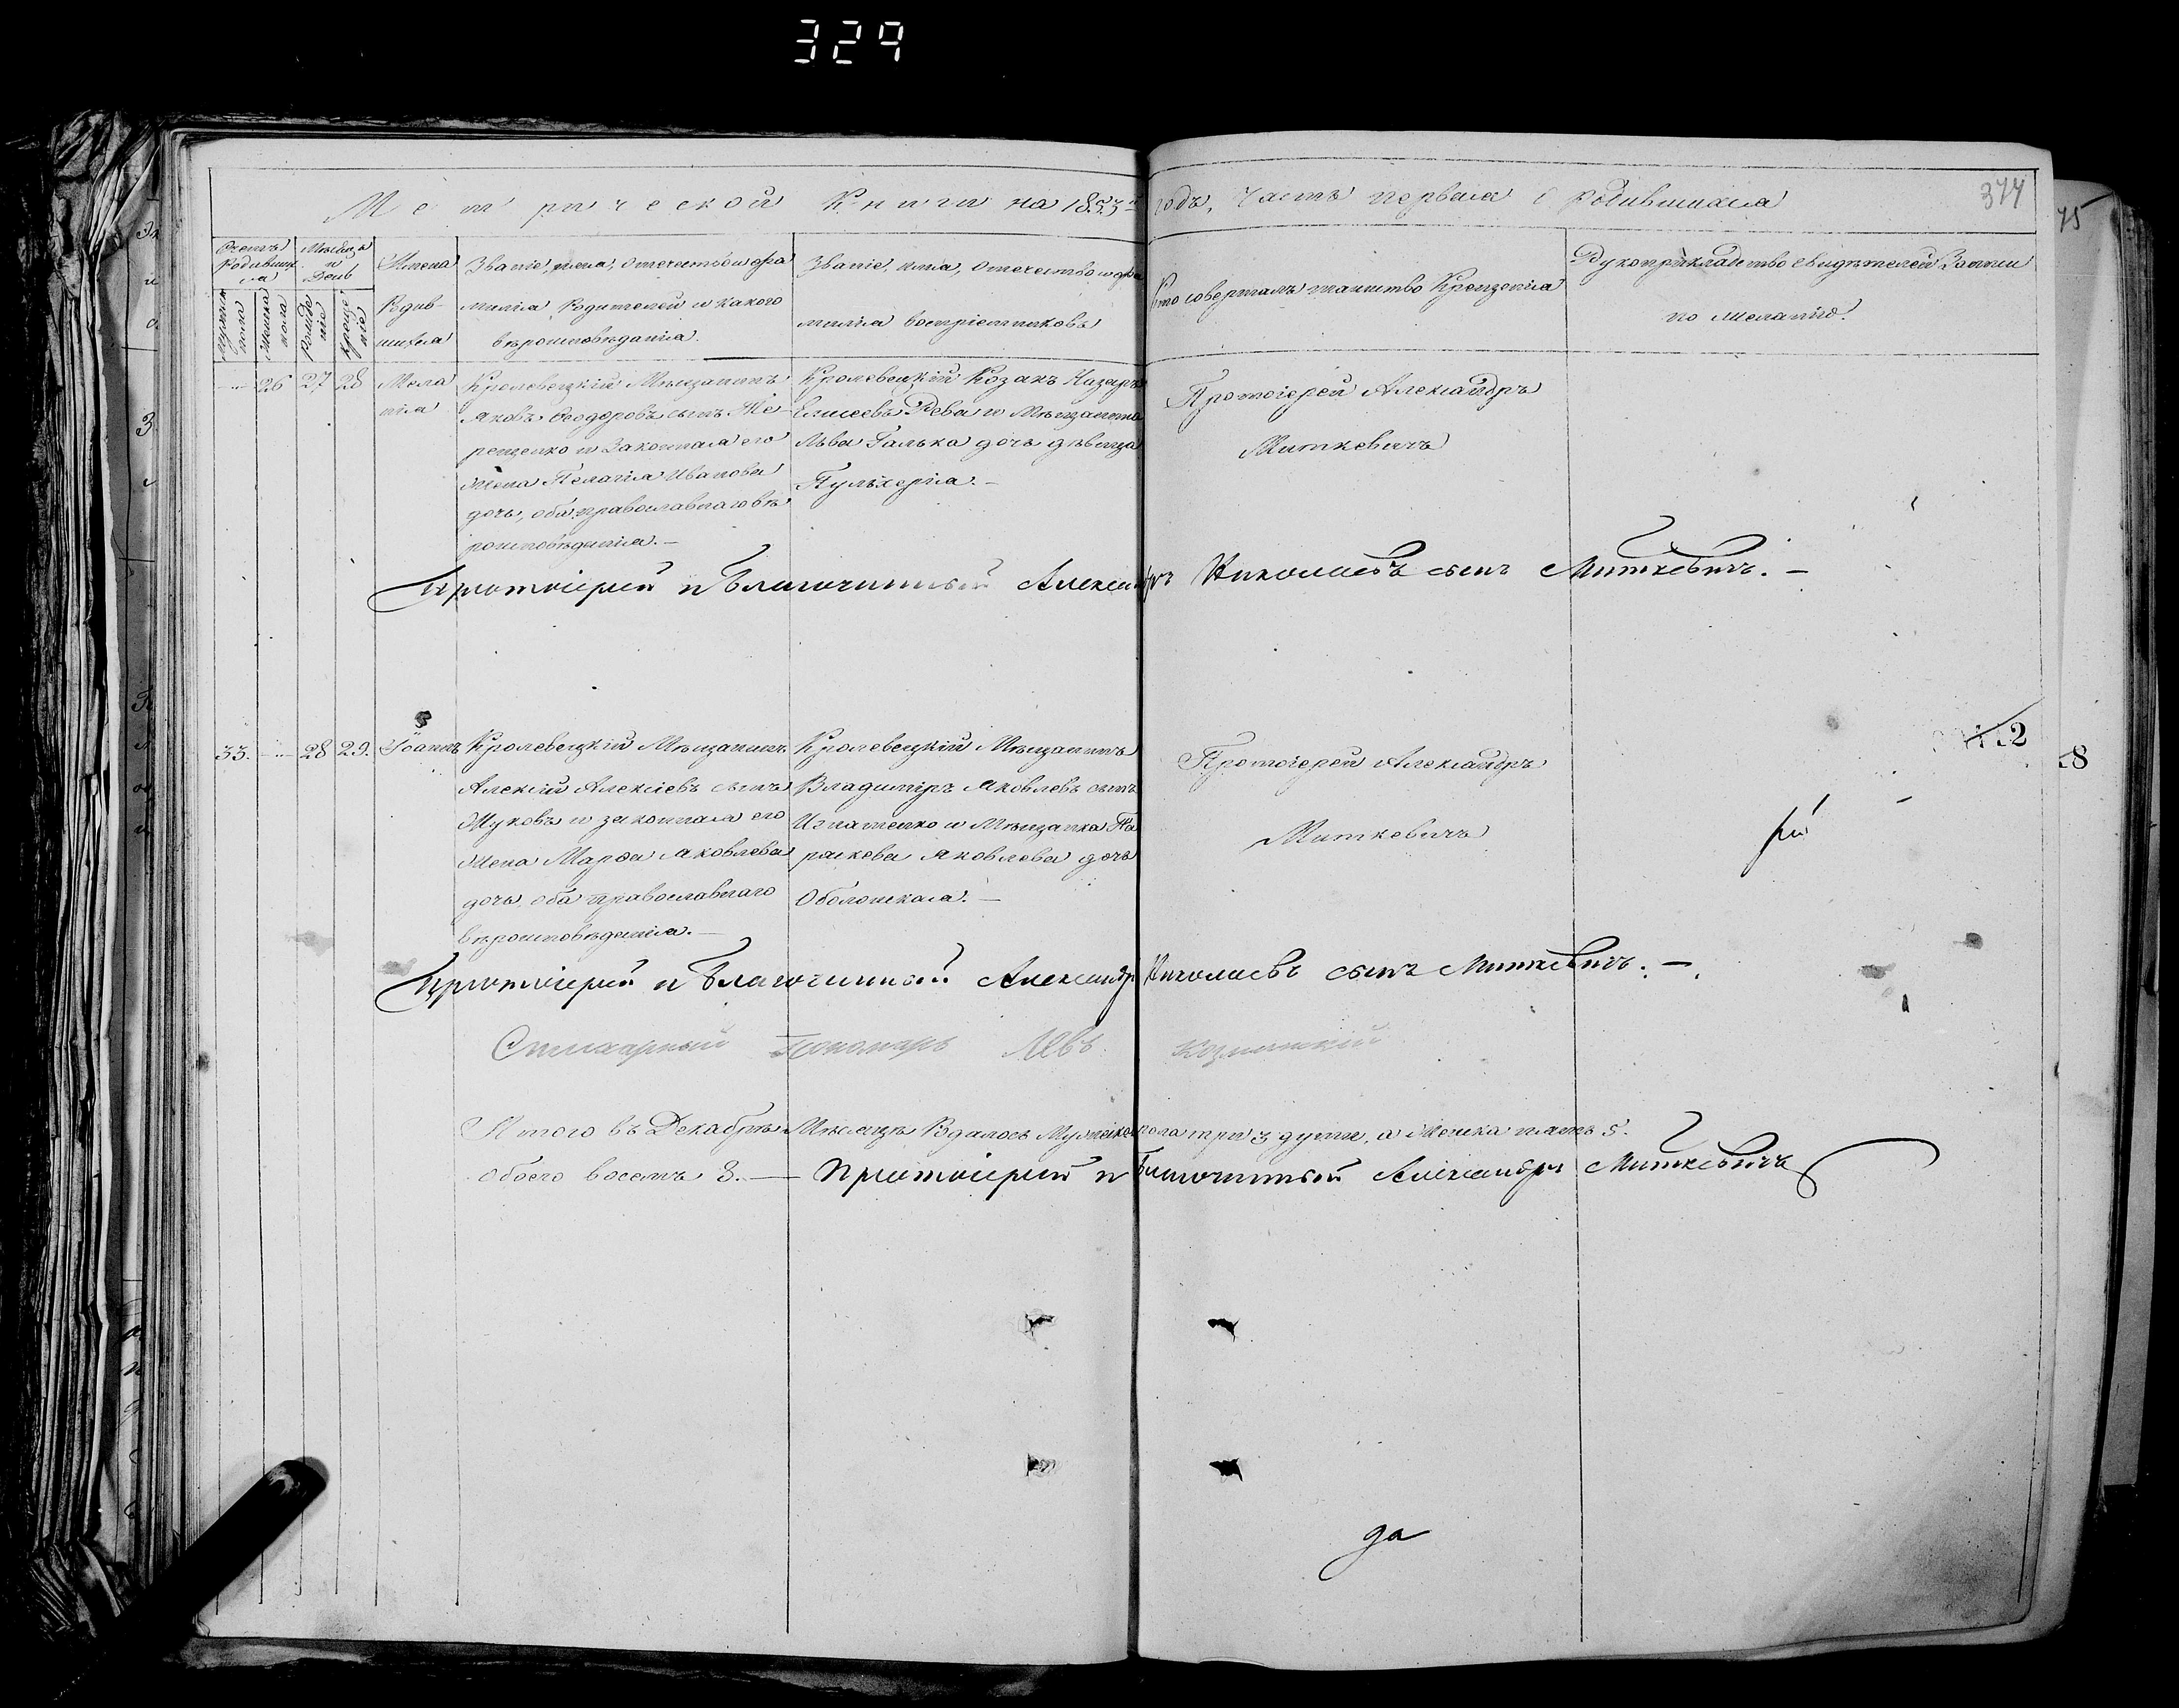 329
Метрической Книги на 1853й годъ, Часть первая о родившихся
377
75
Счетъ родившихся
Мѣсяцъ и день
Имена
Звание, имя, отечество и фа
Звание, имя, отечество и фа
Кто совершалъ таинство Крещенія
Рукоприкладство свидѣтелей Записи
мужеска пола
женска пола
Рожденіе
Крещеніе
Родив-
шихся
милія Родителей и какого
вѣроисповѣданія.
милія воспріемниковъ
по желанію.
26 27 28 Мела
нія
Кролевецкій Мѣщанинъ
Яковъ Ѳеодоровъ сынъ Же
рещенко и Законная его
жена Пелагія Иванова
дочь, оба православнаго вѣ
роисповѣданія.—
Кролевецкій Козакъ Назаръ
Елисеевъ Рева и Мѣщанина
Льва Галька дочь дѣвица
Пульхерія.—
Протоіерей Александръ
Миткевичъ
Протоіерей и Благочинный Александръ Николаевъ сынъ Миткевичъ.—
33. 28 29. Іоаннъ
Кролевецкій Мѣщанинъ
Алексій Алексіевъ сынъ
Жуковъ и законная его
жена Марѳа Яковлева
дочь оба православнаго
вѣроисповѣданія.—
Кролевецкій Мѣщанинъ
Владиміръ Яковлевъ сынъ
Игнатенко и Мѣщанка Па
раскева Яковлева дочь
Оболонская.—
Протоіерей Александръ
Миткевичъ
2
8
рей
Протоіерей и Благочинный Александръ Николаевъ сынъ Миткевичъ.—
Стихарный Пономарь Левъ
Итого въ Декабрѣ Мѣсяцѣ Родилось Мужеска пола три 3 души, а Женска пять 5.
обоего восемь 8.— Протоіерей и Благочинный Александръ Миткевичъ
да